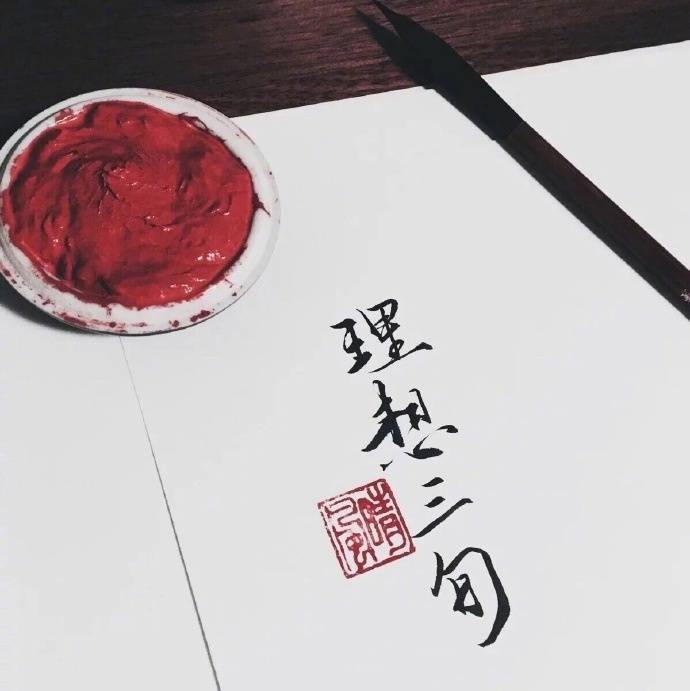 理想三旬
晴風